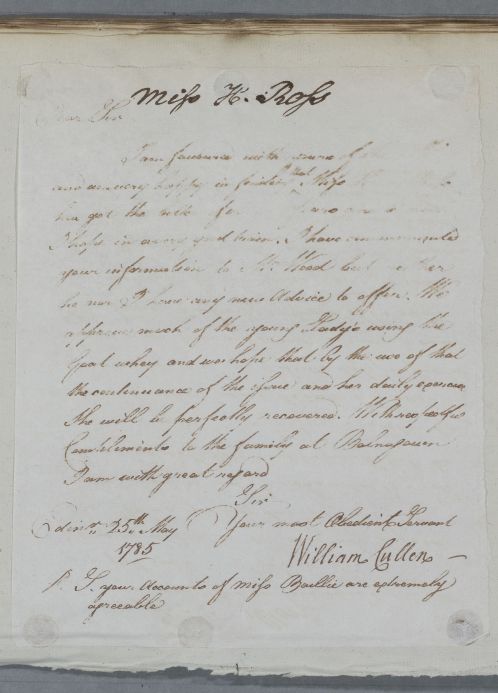 Miss H. Ross
Dear Sir
I am favoured with
and am very happy in finding that Miss
has got the
I hope in a very good train. I have communicated
your information to Mr. Wood but neither
he nor I have any new Advice to offer. We
approve much of the young Lady's using the
Goat whey and we hope that by the use of that
the continuance of the and her daily exercise
She will be perfectly recovered. With respectful
Compliments to the family at Balnagown
I am with great regard
Sir
Edinr. 25th May Your most Obedient Servant
1785
William Cullen
P. S. your Accounts of Miss Baillie are extremely
agreeable